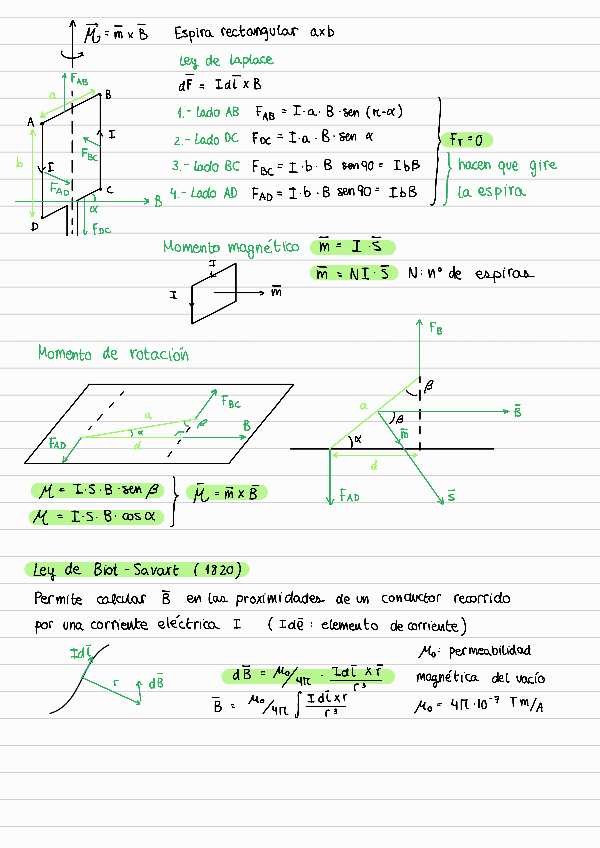 M̄ = m̄ × B̄ Espira rectangular axb
Ley de laplace
dF̄ = Idl̄ × B
F_AB
a
B
A
I
b
I
F_BC
F_AD
C
α
B
D
F_DC
1.- Lado AB F_AB = I·a·B·sen (π-α)
2.- Lado DC F_DC = I·a·B·sen α
3.- Lado BC F_BC = I·b·B sen90 = IbB
4.- Lado AD F_AD = I·b·B sen90 = IbB
Fr=0
hacen que gire
la espira
Momento magnético m̄ = I·S̄
m̄ = NI·S̄ N: nº de espiras
I
I
m̄
Momento de rotación
F_BC
a
B
α
β
d
F_AD
F_B
β
a
B̄
β
m̄
α
d
F_AD
S̄
M = I·S·B·sen β
M = I·S·B·cos α
M̄ = m̄ × B̄
Ley de Biot-Savart (1820)
Permite calcular B̄ en las proximidades de un conductor recorrido
por una corriente eléctrica I (Idē: elemento de corriente)
Idl̄
r
dB̄
dB̄ = μ₀/4π · Idl̄ × r̄ / r³
B̄ = μ₀/4π ∫ Idl̄xr / r³
μ₀: permeabilidad
magnética del vacío
μ₀ = 4π·10⁻⁷ Tm/A